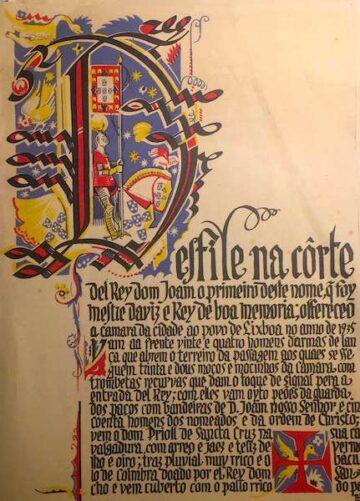 Desfile na côrte
del Rey dom Joam o primeiro deste nome, q̃ foy
mestre daviz e Rey de boa memoria; offereceo
a camara da cidade ao povo de Lixboa no anno de 1935
Vam aa frente vinte e quatro homens darmas de lan
ça que abrem o terreiro da passagem aos quaes se se
guem trinta e dous moços e mocinhos da câmara, com
trombetas recurvas que dam o toque de signal pera a
entrada del Rey; com elles vam oyto pedes da guarda
dos paços com bandeiras de D. Joam nosso Senhor e cin
coenta homens dos nomeados e da ordem de Christo;
vem o dom Prioll de Sancta Cruz na sua ca
valgadura, com arreo e jaes e telliz de verme
lho e oiro; traz pluvial muy rico e o bacu
lo de Coimbra doado por el Rey dom San
cho e vem cuberto com o palto rico do